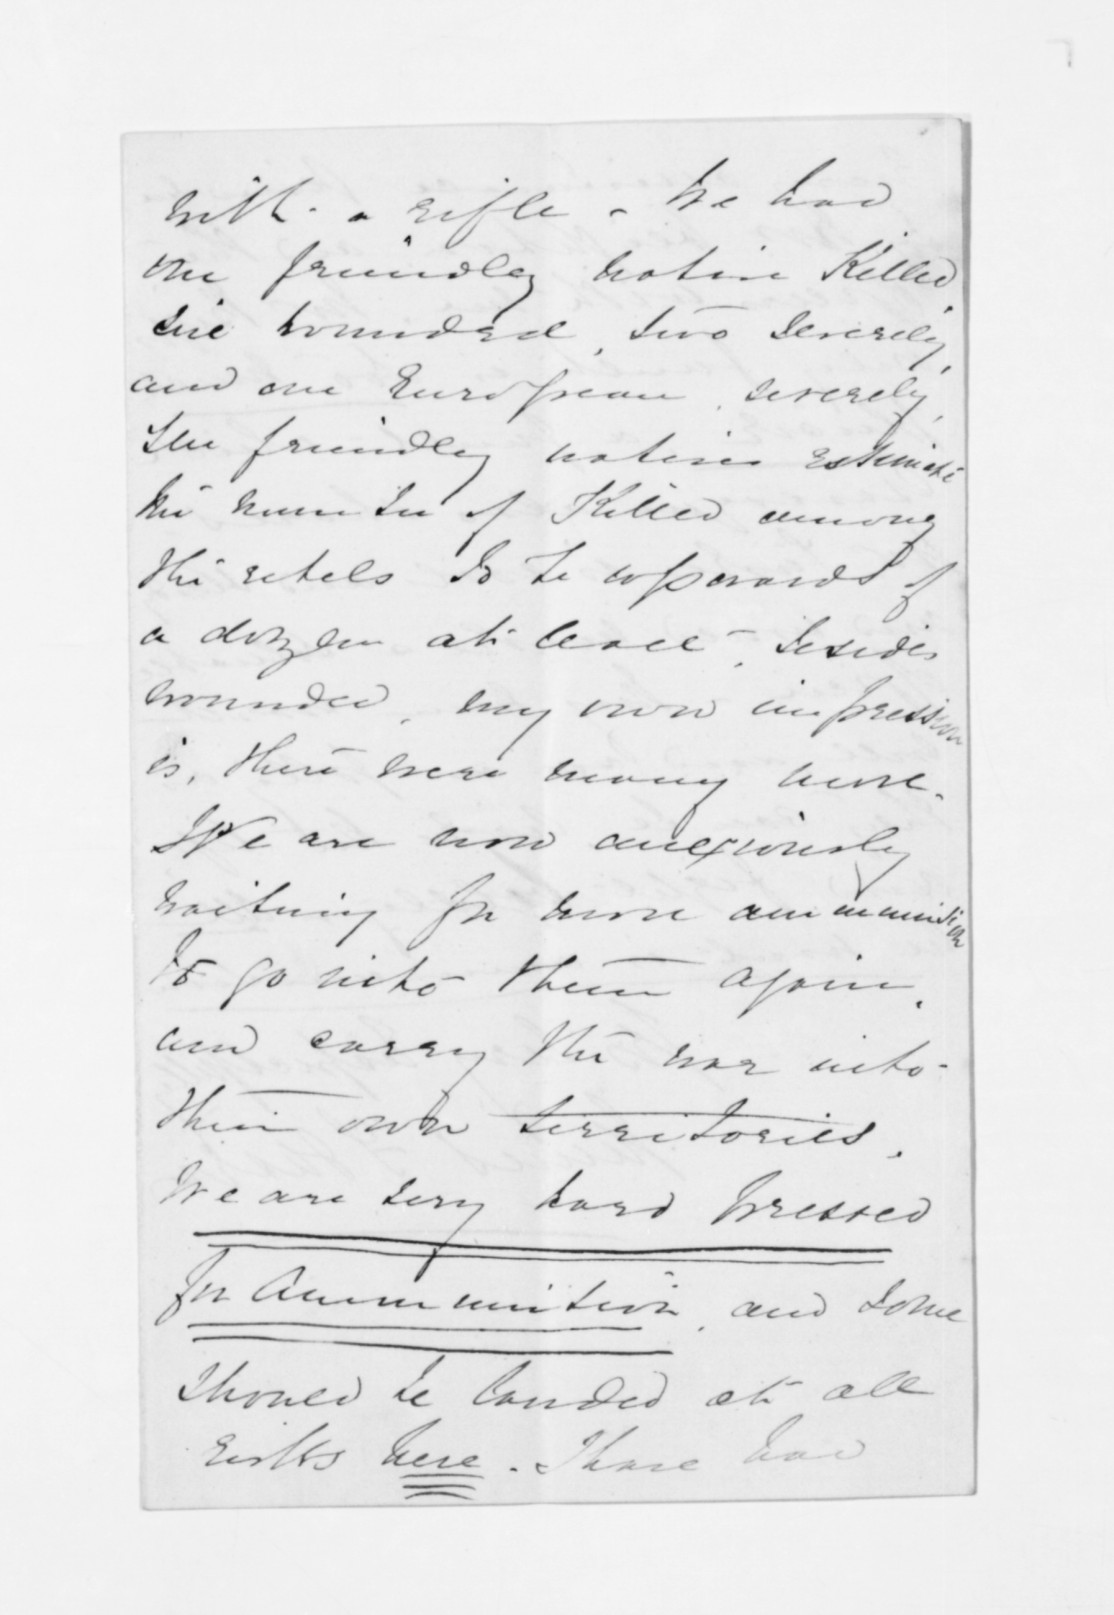 with a rifle - We had
one friendly native Killed,
six wounded, two severely,
and one European, severely,
The friendly natives estimate
the number of Killed among
the rebels to be upwards of
a dozen at least, besides
wounded, my own impression
is, there were many more.
We are now anxiously
waiting for more ammunition
to go into them again,
and carry the war into
their own territories.
We are very hard pressed
for Ammunition, and some
should be landed at all
risks here. I have had